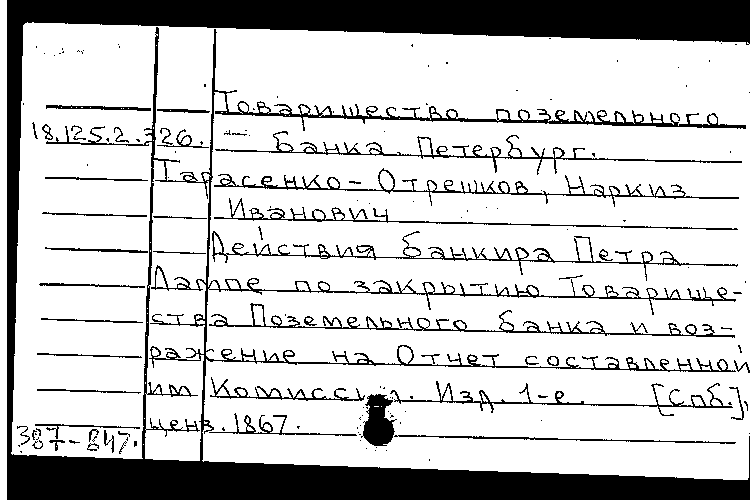 Товарищество поземельного
18.125.2.326. — Банка. Петербург.
Тарасенко-Отрешков, Наркиз
Иванович
Действия банкира Петра
Лампе по закрытию Товарище-
ства Поземельного банка и воз-
ражение на Отчет составленной
им Комиссии. Изд. 1-е. [Спб.],
ценз. 1867.
387-847.